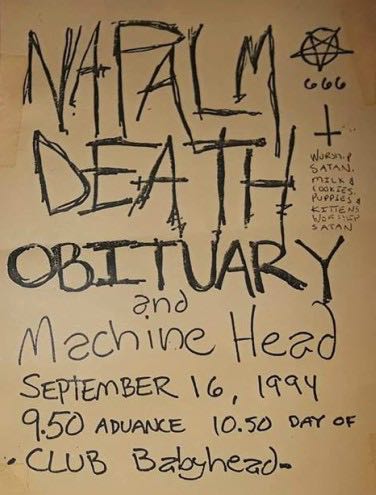 NAPALM
666
DEATH
WORSHIP
SATAN.
MILK &
COOKIES.
PUPPIES &
KITTENS
WORSHIP
SATAN
OBITUARY
and
Machine Head
SEPTEMBER 16, 1994
9.50 ADVANCE 10.50 DAY OF
• CLUB Babyhead-